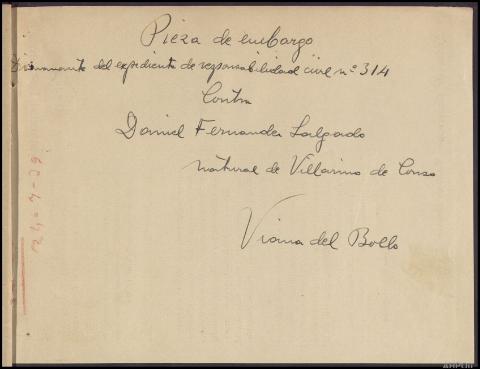 Pieza de embargo
Dimanante del expediente de responsabilidad civil nº 314
Contra
Daniel Fernandez Salgado
natural de Villarino de Conso
Viana del Bollo
24-7-39